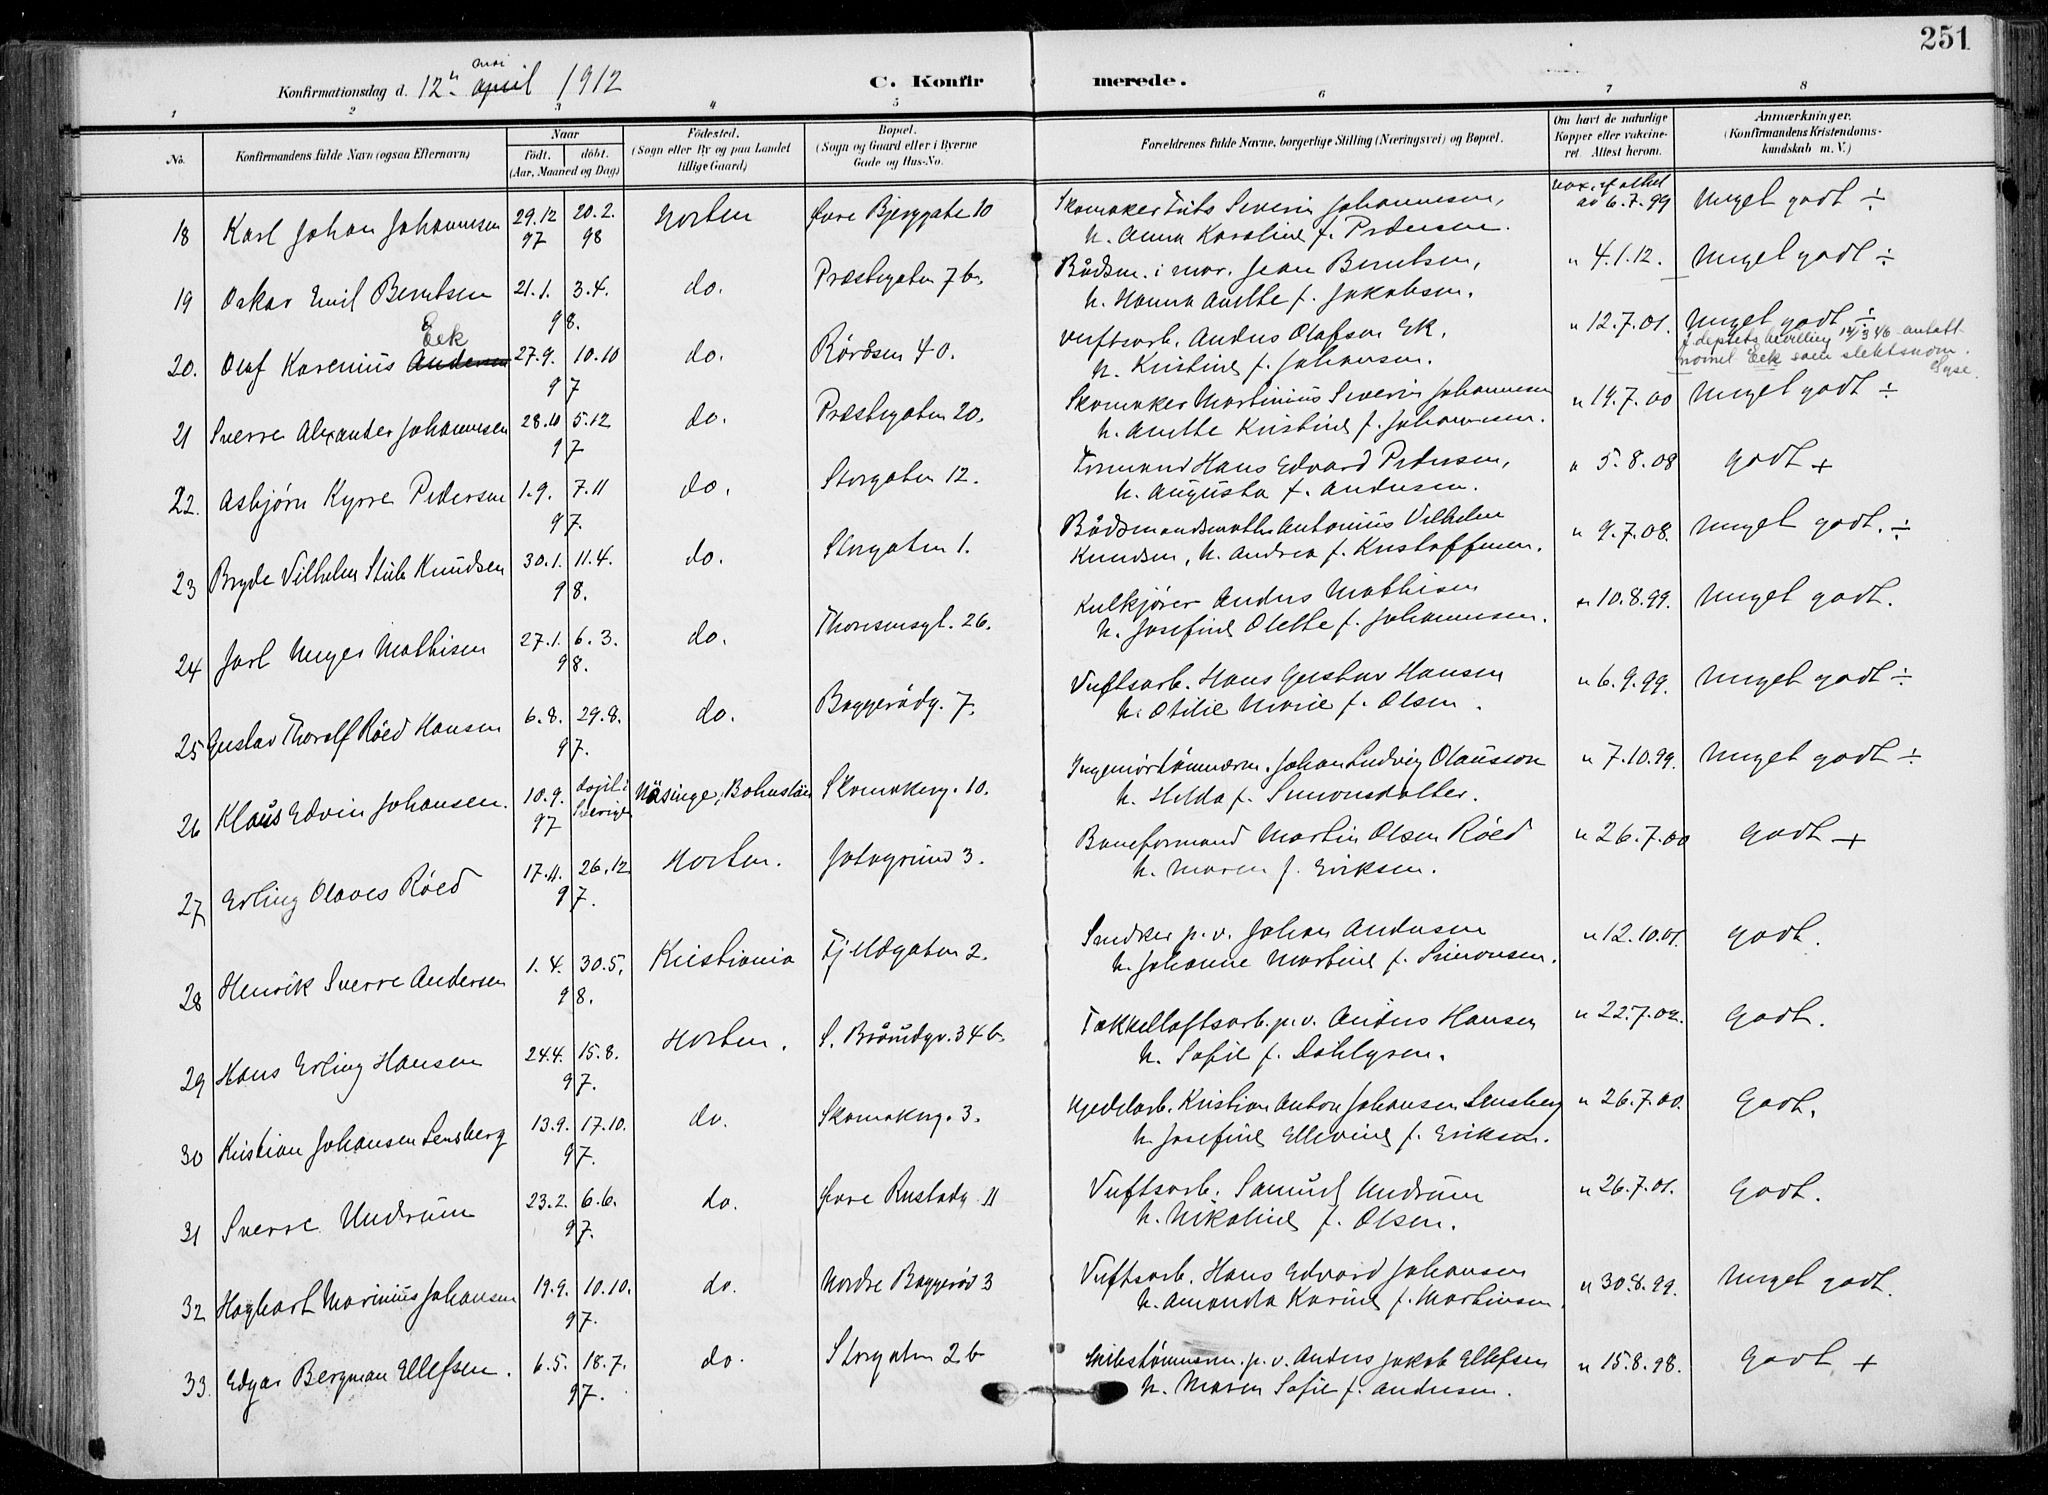 251
mai
Konfirmationsdag d. 12te april 1912
C. Konfirmerede.
1 2 3 4 5 6 7 8
No.
Konfirmandens fulde Navn (ogsaa Efternavn)
Naar
født. døbt.
(Aar, Maaned og Dag)
Fødested.
(Sogn eller By og paa Landet
tillige Gaard)
Bopæl.
(Sogn og Gaard eller i Byerne
Gade og Hus-No.
Forældrenes fulde Navne, borgerlige Stilling (Næringsvei) og Bopæl.
Om havt de naturlige
Kopper eller vakcine-
ret. Attest herom.
Anmærkninger.
(Konfirmandens Kristendoms-
kundskab m. V.)
18 Karl Johan Johannesen 29.12 20.2. Horten Øvre Bjerggate 10 Skomaker Frits Severin Johannesen, vax. attest
97 98 h. Anna Karoline f. Pedersen. av 6.7.99 Meget godt ÷
19 Oskar Emil Berntsen 21.1. 3.4. do. Præstegaten 7b. Bådsm. i mar. Jean Berntsen, " 4.1.12. Meget godt ÷
98. h. Hanna Anette f. Jakobsen.
20. Olaf Karenius Andersen Eek 27.9. 10.10 do. Röråsen 40. Verftsarb. Anders Olafsen Ek. " 12.7.01. Meget godt ÷
97 h. Kristine f. Johansen. f. deptets bevilling 14/3 46 antatt
navnet Eek som slektsnavn.
21 Sverre Alexander Johannesen 28.10 5.12 do. Præstegaten 20. Skomaker Martinius Severin Johannesen " 19.7.00 Meget godt ÷
97 h. Anette Kristine f. Johannesen.
22. Asbjørn Kyrre Pedersen 1.9. 7.11 do. Storgaten 12. Formand Hans Edvard Pedersen, " 5.8.08 godt +
97. h. Augusta f. Andersen.
23 Bryde Vilhelm Stub Knudsen 30.1. 11.4. do. Storgaten 1. Bådsmandsmath Antonius Vilhelm " 9.7.08. Meget godt. ÷
98. Knudsen, h. Andrea f. Kristoffersen.
24 Jarl Meyer Mathisen 27.1. 6.3. do. Thorsensgt. 26. Kulkjører Anders Mathisen " 10.8.99. Meget godt.
98. h. Josefine Olette f. Johannesen.
25 Gustav Thoralf Röed Hansen 6.8. 29.8. do. Baggerødg. 7. Verftsarb. Hans Gustav Hansen " 6.9.99. Meget godt ÷
97. h. Otilie Marie f. Olsen.
26 Klaus Edvin Johansen. 10.9. døpt i Näsinge, Bohuslän Skomakerg. 10. Ingeniørtømmerm. Johan Ludvig Olausson " 7.10.99. Meget godt ÷
97 Sverige h. Hilda f. Simonsdatter.
27 Erling Olaves Röed 17.11. 26.12. Horten. Jotagrund 3. Baneformand Martin Olsen Röed " 26.7.00 Godt +
97. h. Maren f. Eriksen.
28 Henrik Sverre Andersen 1.4. 30.5. Kristiania Fjeldgaten 2. Snedker p.v. Johan Andersen " 12.10.01. Godt.
98. h. Johanne Martine f. Simonsen.
29 Hans Erling Hansen 24.4. 15.8. Horten. S. Bråröidgv. 34b. Takkelloftsarb. p.v. Anders Hansen " 22.7.02. Godt.
97. h. Sofie f. Dahlgren.
30 Kristian Johansen Lensberg 13.9. 17.10. do. Skomakerg. 3. Kjedelarb. Kristian Anton Johansen Lensberg " 26.7.00. Godt.
97. h. Josefine Ellevine f. Eriksen.
31 Sverre Undrum 23.2. 6.6. do. Øvre Rustadg. 11 Verftsarb. Samuel Undrum " 26.7.01. Godt.
97. h. Nikoline f. Olsen.
32 Hagbart Marinius Johansen 19.9. 10.10. do. Nordre Baggerød 3 Verftsarb. Hans Edvard Johansen " 30.8.99. Meget godt.
97. h. Amanda Karine f. Martinsen.
33. Edgar Bergman Ellefsen. 6.5. 18.7. do. Storgaten 2b Skibstømmerm. p.v. Anders Jakob Ellefsen " 15.8.98. Godt +
97. h. Maren Sofie f. Andersen.